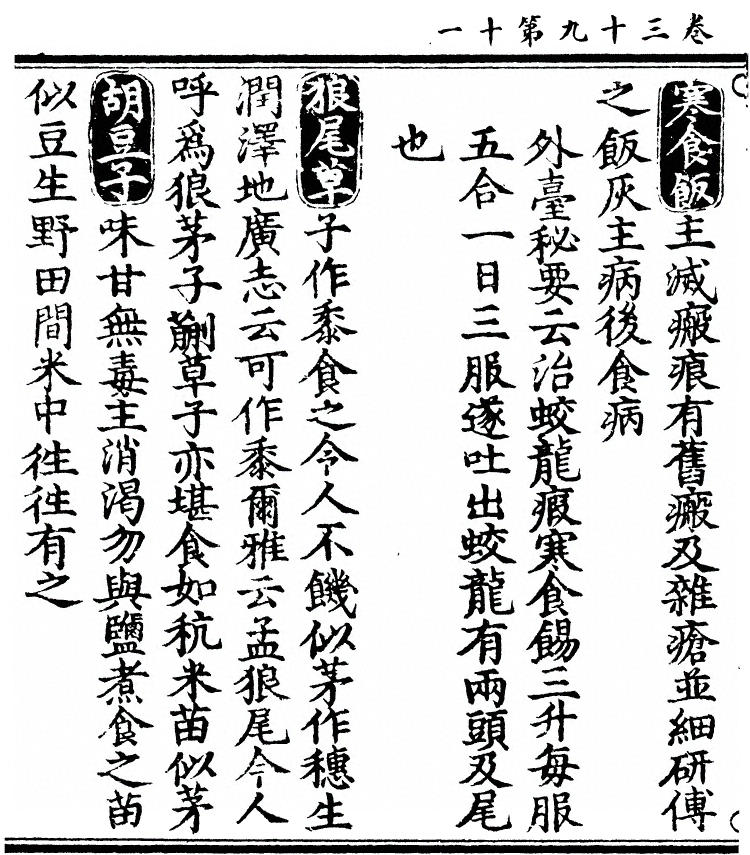 卷三十九第十一
寒食飯主滅瘢痕有舊瘢及雜瘡並細研傅
之飯灰主病後食病
外臺秘要云治蛟龍瘕寒食餳三升每服
五合一日三服遂吐出蛟龍有兩頭及尾
也
狼尾草子作黍食之令人不饑似茅作穗生
潤澤地廣志云可作黍爾雅云孟狼尾今人
呼爲狼茅子蒯草子亦堪食如秔米苗似茅
胡豆子味甘無毒主消渴勿與鹽煮食之苗
似豆生野田間米中徃徃有之